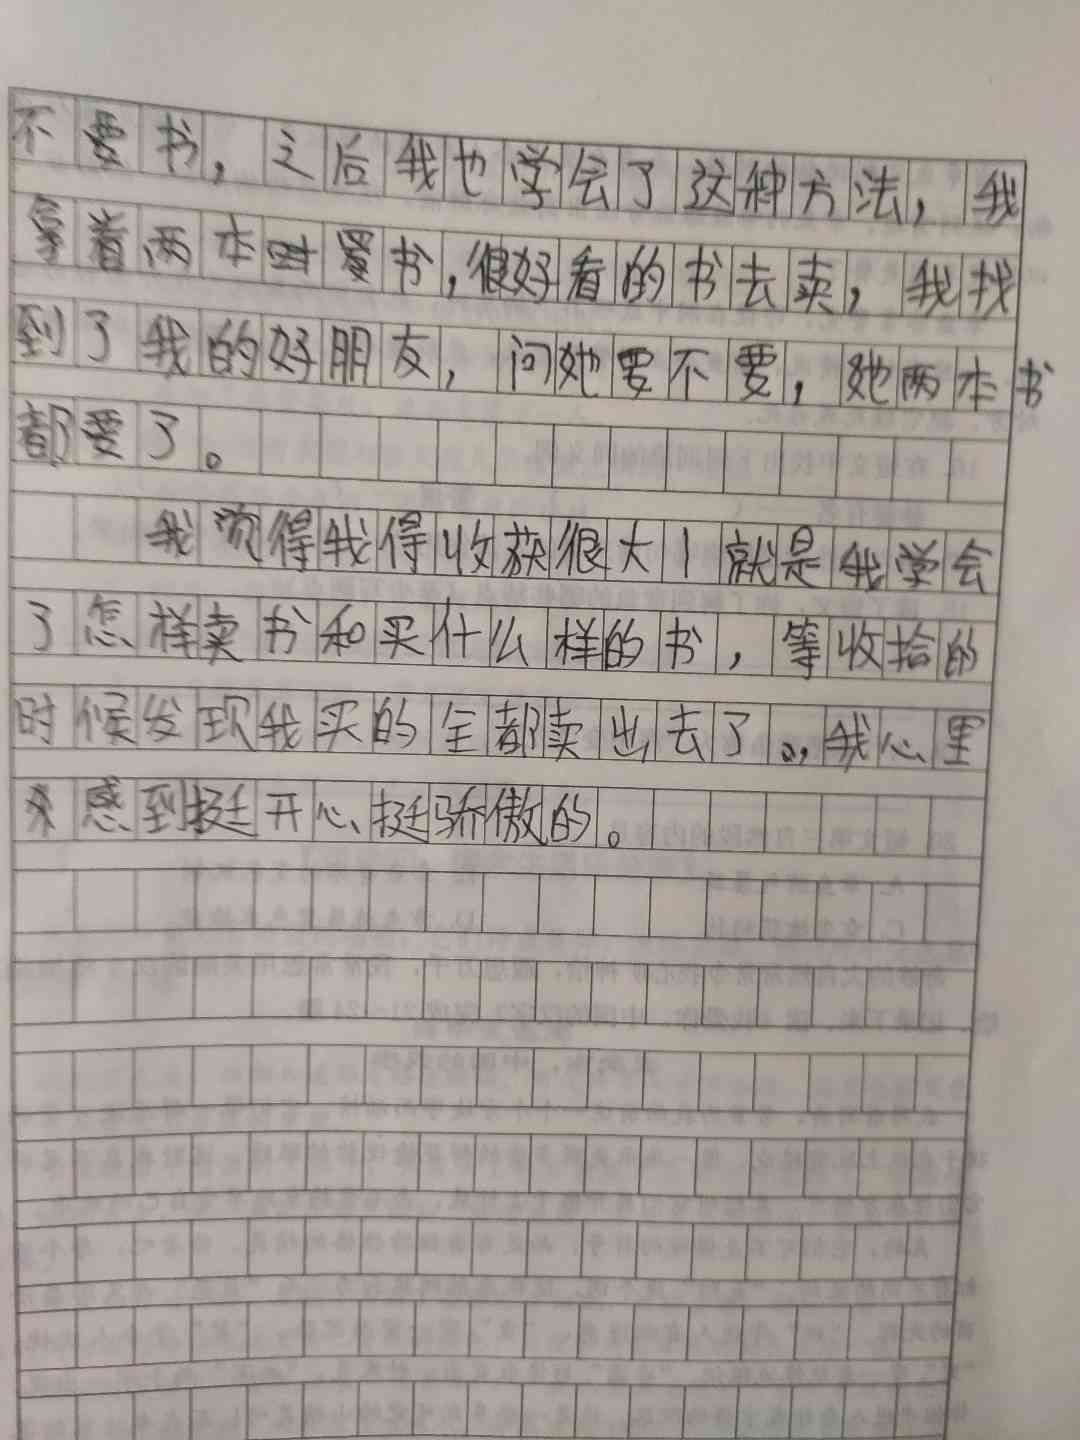 不要书，之后我也学会了这种方法，我
拿着两本书，很好看的书去卖，我找
到了我的好朋友，问她要不要，她两本书
都要了。
我觉得我得收获很大！就是我学会
了怎样卖书和买什么样的书，等收拾的
时候发现我买的全都卖出去了。，我心里
感到挺开心、挺骄傲的。